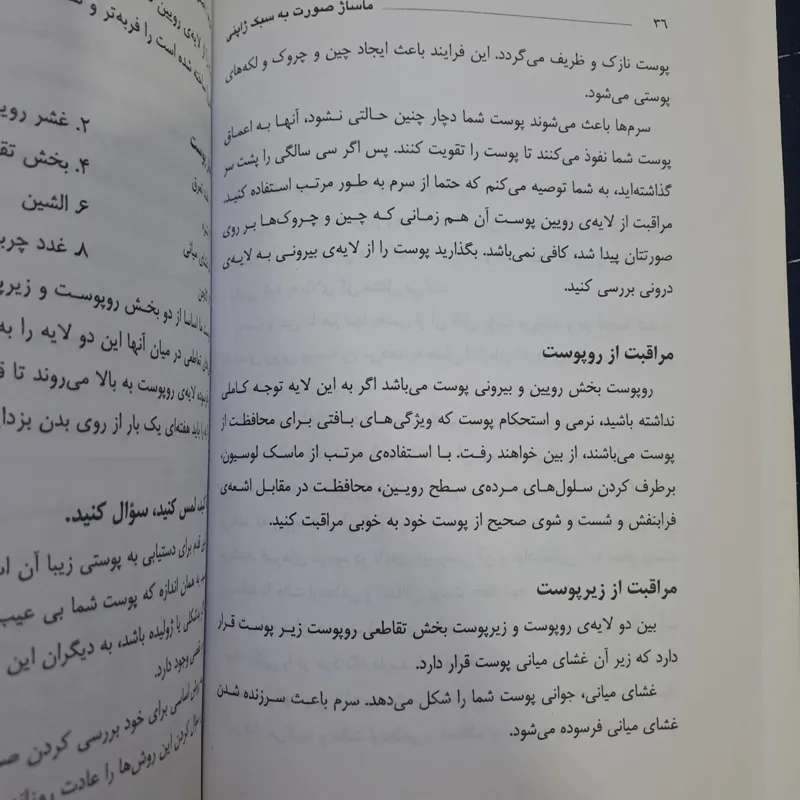 ۳۶
ماساژ صورت به سبک ژاپنی
پوست نازک و ظریف می‌گردد. این فرایند باعث ایجاد چین و چروک و لکه‌های
پوستی می‌شود.
سرم‌ها باعث می‌شوند پوست شما دچار چنین حالتی نشود، آنها به اعماق
پوست شما نفوذ می‌کنند تا پوست را تقویت کنند. پس اگر سی سالگی را پشت سر
گذاشته‌اید، به شما توصیه می‌کنم که حتما از سرم به طور مرتب استفاده کنید.
مراقبت از لایه‌ی رویین پوست آن هم زمانی که چین و چروک‌ها بر روی
صورتتان پیدا شد، کافی نمی‌باشد. بگذارید پوست را از لایه‌ی بیرونی به لایه‌ی
درونی بررسی کنید.
مراقبت از روپوست
روپوست بخش رویین و بیرونی پوست می‌باشد اگر به این لایه توجه کاملی
نداشته باشید، نرمی و استحکام پوست که ویژگی‌های بافتی برای محافظت از
پوست می‌باشند، از بین خواهند رفت. با استفاده‌ی مرتب از ماسک لوسیون،
برطرف کردن سلول‌های مرده‌ی سطح رویین، محافظت در مقابل اشعه‌ی
فرابنفش و شست و شوی صحیح از پوست خود به خوبی مراقبت کنید.
مراقبت از زیرپوست
بین دو لایه‌ی روپوست و زیرپوست بخش تقاطعی روپوست زیر پوست قرار
دارد که زیر آن غشای میانی پوست قرار دارد.
غشای میانی، جوانی پوست شما را شکل می‌دهد. سرم باعث سرزنده شدن
غشای میانی فرسوده می‌شود.
از لایه‌ی رویین
شده است را فربه‌تر و
۲. غشر
۴. بخش
۶. الشین
۸. غدد
از دو بخش روپوست و
تقاطعی در میان آنها این دو لایه را به
لایه‌ی روپوست به بالا می‌روند تا
هفته‌ای یک بار از روی بدن
لمس کنید، سؤال کنید.
قدم برای دستیابی به پوستی زیبا آن
همان اندازه که پوست شما بی عیب
یا ژولیده باشد، به دیگران این
وجود دارد.
اساسی برای خود بررسی کردن
کردن این روش‌ها را عادت